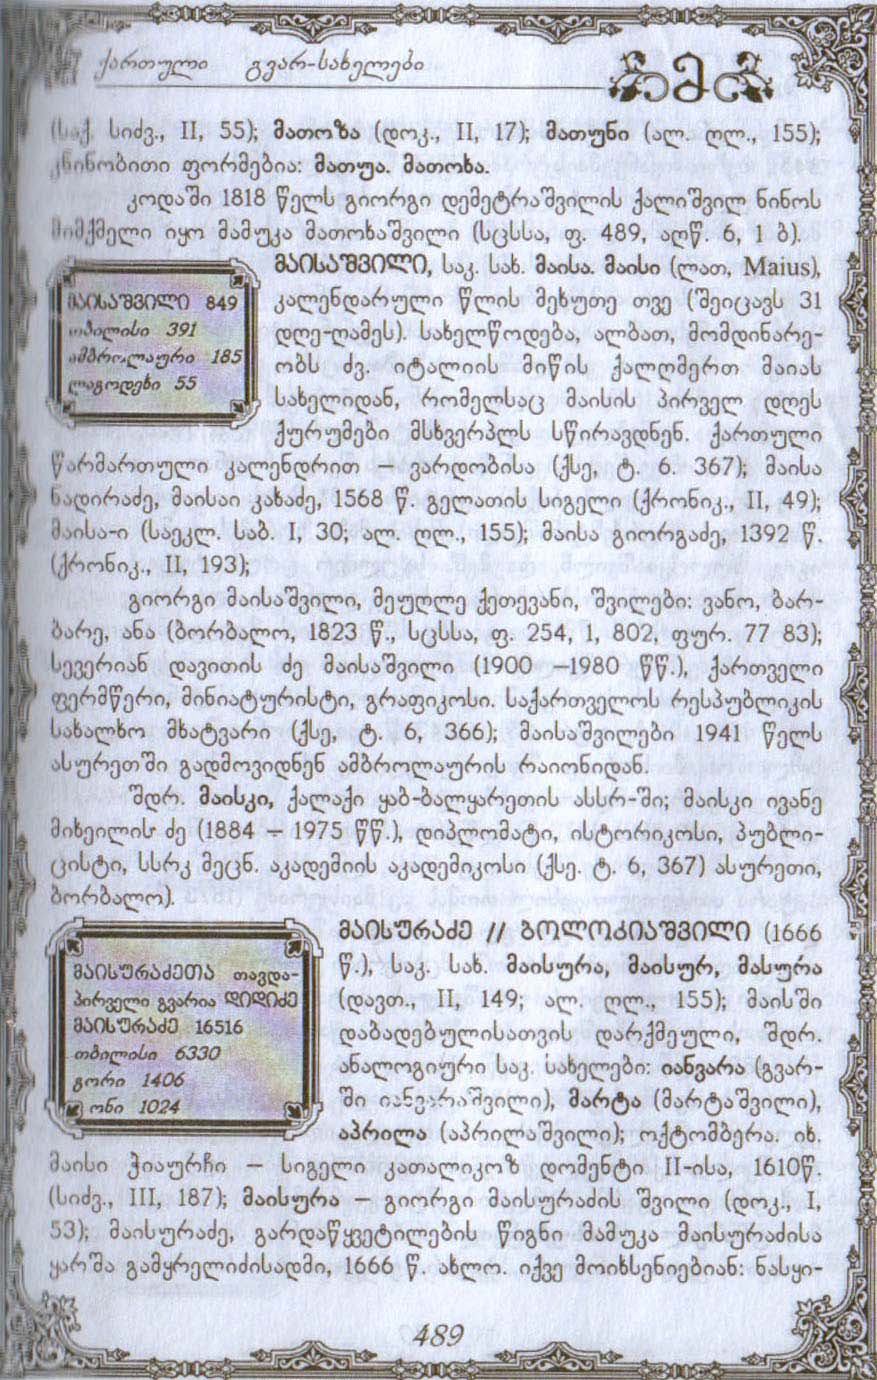 ქართული გვარ-სახელები
მ
(საქ. სიძვ., II, 55); მათოზა (დოკ., II, 17); მათუნი (ალ. ღლ., 155);
კნინობითი ფორმებია: მათუა. მათოხა.
კოდაში 1818 წელს გიორგი დემეტრაშვილის ქალიშვილ ნინოს
მიმქმელი იყო მამუკა მათოხაშვილი (სცსსა, ფ. 489, აღწ. 6, 1 ბ).
მაისაშვილი 849
თბილისი 391
ამბროლაური 185
ლაგოდეხი 55
მაისაშვილი, საკ. სახ. მაისა. მაისი (ლათ, Maius),
კალენდარული წლის მეხუთე თვე (შეიცავს 31
დღე-ღამეს). სახელწოდება, ალბათ, მომდინარე-
ობს ძვ. იტალიის მიწის ქალღმერთ მაიას
სახელიდან, რომელსაც მაისის პირველ დღეს
ქურუმები მსხვერპლს სწირავდნენ. ქართული
წარმართული კალენდრით – ვარდობისა (ქსე, ტ. 6. 367); მაისა
ნადირაძე, მაისაი კახაძე, 1568 წ. გელათის სიგელი (ქრონიკ., II, 49);
მაისა-ი (საეკლ. საბ. I, 30; ალ. ღლ., 155); მაისა გიორგაძე, 1392 წ.
(ქრონიკ., II, 193);
გიორგი მაისაშვილი, მეუღლე ქეთევანი, შვილები: ვანო, ბარ-
ბარე, ანა (ბორბალო, 1823 წ., სცსსა, ფ. 254, 1, 802, ფურ. 77 83);
სევერიან დავითის ძე მაისაშვილი (1900 –1980 წწ.), ქართველი
ფერმწერი, მინიატურისტი, გრაფიკოსი. საქართველოს რესპუბლიკის
სახალხო მხატვარი (ქსე, ტ. 6, 366); მაისაშვილები 1941 წელს
ასურეთში გადმოვიდნენ ამბროლაურის რაიონიდან.
შდრ. მაისკი, ქალაქი ყაბ-ბალყარეთის ასსრ-ში; მაისკი ივანე
მიხეილის ძე (1884 – 1975 წწ.), დიპლომატი, ისტორიკოსი, პუბლი-
ცისტი, სსრკ მეცნ. აკადემიის აკადემიკოსი (ქსე. ტ. 6, 367) ასურეთი,
ბორბალო).
მაისურაძეთა თავდა-
პირველი გვარია დიდიძე
მაისურაძე 16516
თბილისი 6330
გორი 1406
ონი 1024
მაისურაძე // ბოლოკიაშვილი (1666
წ.), საკ. სახ. მაისურა, მაისურ, მასურა
(დავთ., III, 149; ალ. ღლ., 155); მაისში
დაბადებულისათვის დარქმეული, შდრ.
ანალოგიური საკ. სახელები: იანვარა (გვარ-
ში იანვარაშვილი), მარტა (მარტაშვილი),
აპრილა (აპრილაშვილი); ოქტომბერა. იხ.
მაისი ჭიაურჩი – სიგელი კათალიკოზ დომენტი II-ისა, 1610წ.
(სიძვ., III, 187); მაისურა – გიორგი მაისურაძის შვილი (დოკ., I,
53); მაისურაძე, გარდაწყვეტილების წიგნი მამუკა მაისურაძისა
ყარშა გამყრელიძისადმი, 1666 წ. ახლო. იქვე მოიხსენიებიან: ნასყი-
489